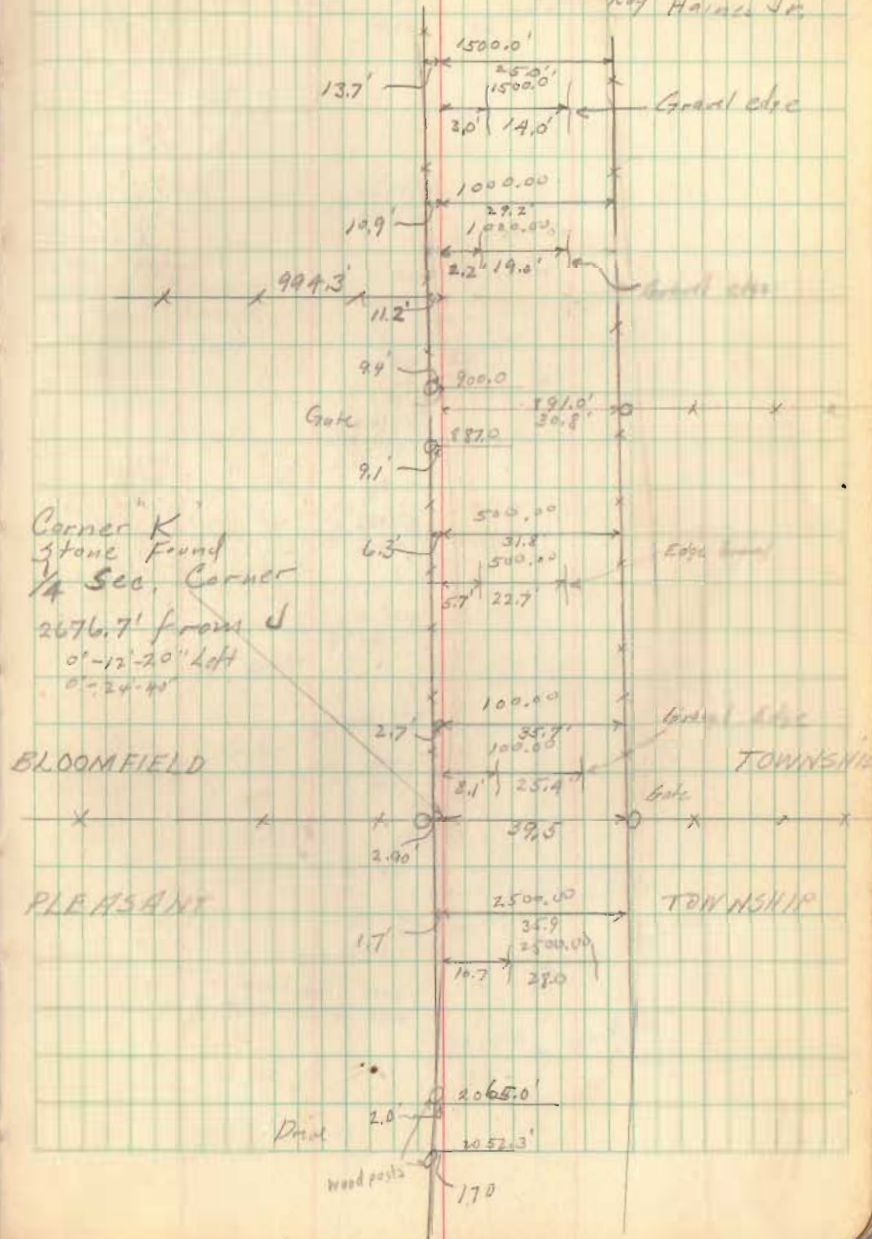 Haines Jr.
1500.0'
25.0'
13.7'
1500.0'
Gravel edge
3.0' 14.0'
1000.00
29.2'
10.9'
1000.00
2.2' 19.0'
Gravel edge
994.3'
11.2'
9.9'
900.0
891.0'
30.8'
Gate
887.0
9.1'
Corner "K"
Stone Found
1/4 Sec. Corner
2676.7' from J
0°-12'-20" Left
0°-24'-40"
500.00
31.8'
6.3'
500.00
Edge Gravel
5.7' 22.7'
100.00
35.7'
2.7'
100.00
Gravel Edge
8.1' 25.4'
BLOOMFIELD
TOWNSHIP
Gate
39.5
2.90'
PLEASANT
TOWNSHIP
2500.00
35.9
1.7'
2500.00
10.7 28.0
2065.0'
2.0'
2052.3'
wood posts
1.70